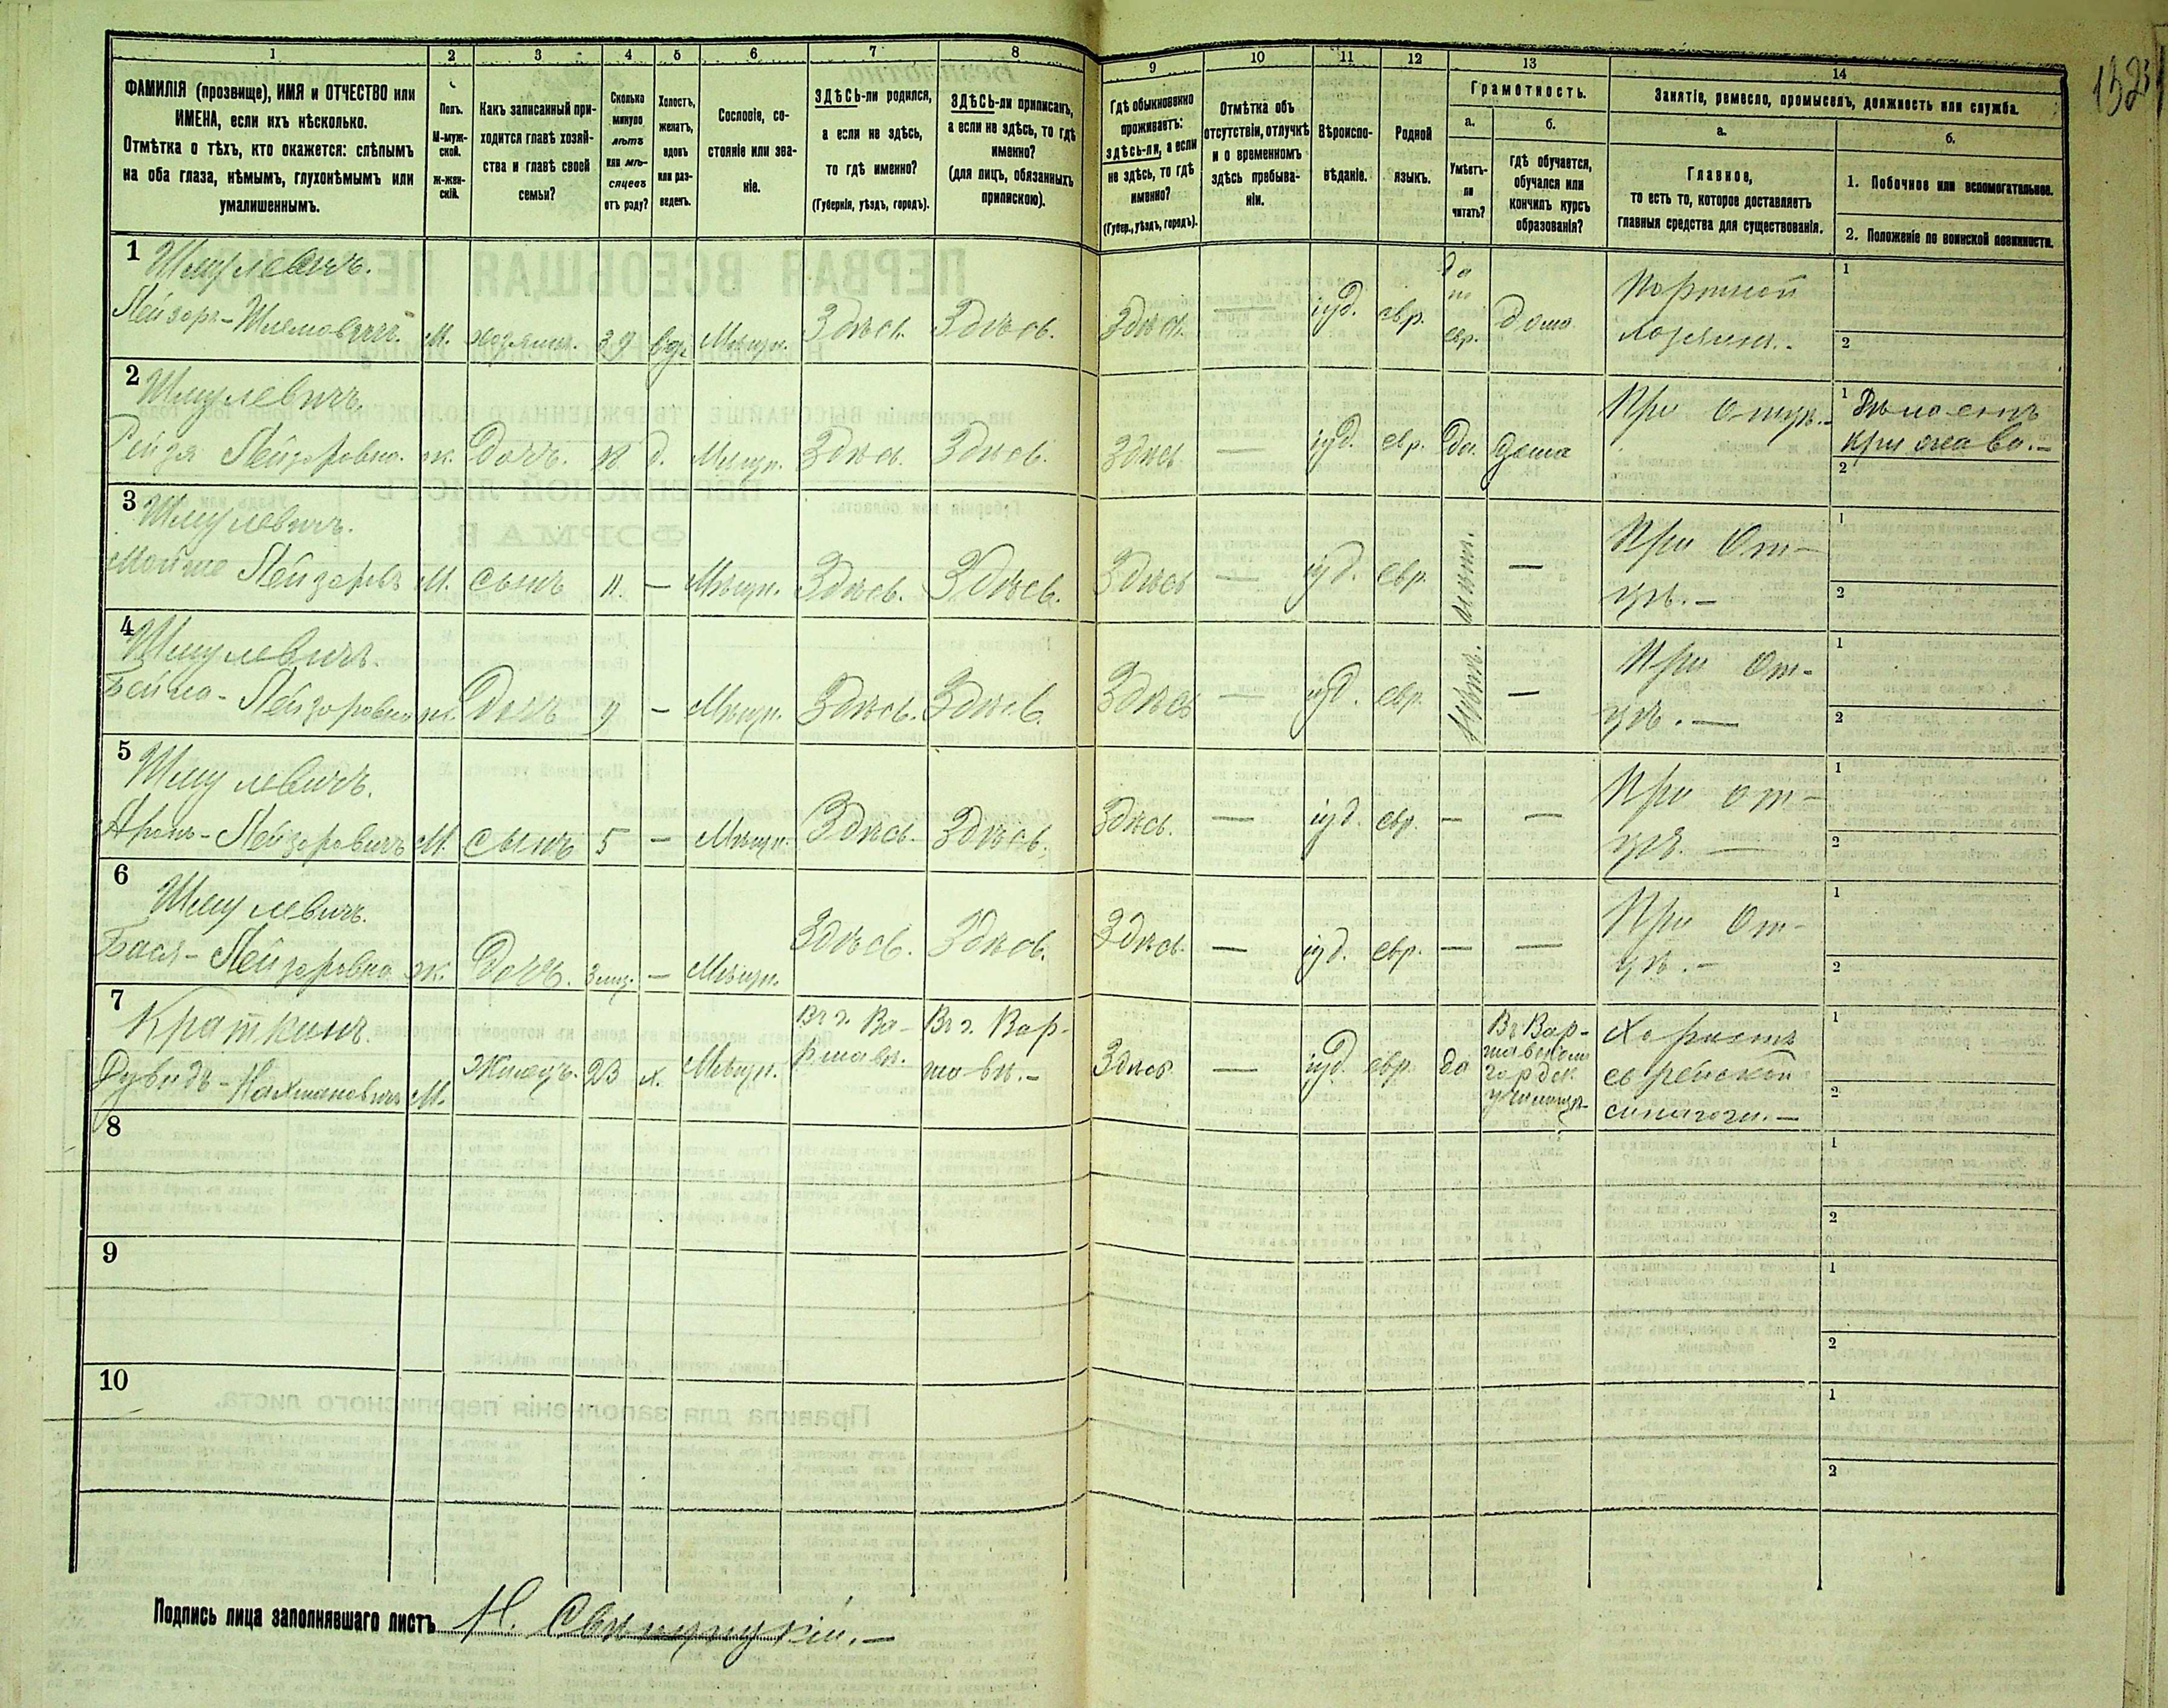 1 2 3 4 5 6 7 8 9 10 11 12 13 14
ФАМИЛІЯ (прозвище), ИМЯ и ОТЧЕСТВО или
ИМЕНА, если ихъ нѣсколько.
Отмѣтка о тѣхъ, кто окажется: слѣпымъ
на оба глаза, нѣмымъ, глухонѣмымъ или
умалишеннымъ.
Полъ.
М-муж-
ской.
Ж-жен-
скій.
Какъ записанный при-
ходится главѣ хозяй-
ства и главѣ своей
семьи?
Сколько
минуло
лѣтъ
или мѣ-
сяцевъ
отъ роду?
Холостъ,
женатъ,
вдовъ
или раз-
веденъ.
Сословіе, со-
стояніе или зва-
ніе.
ЗДѢСЬ-ли родился,
а если не здѣсь,
то гдѣ именно?
(Губернія, уѣздъ, городъ).
ЗДѢСЬ-ли приписанъ,
а если не здѣсь, то гдѣ
именно?
(для лицъ, обязанныхъ
припискою).
Гдѣ обыкновенно
проживаетъ:
здѣсь-ли, а если
не здѣсь, то гдѣ
именно?
(Губер., уѣздъ, городъ).
Отмѣтка объ
отсутствіи, отлучкѣ
и о временномъ
здѣсь пребыва-
ніи.
Вѣроиспо-
вѣданіе.
Родной
языкъ.
Грамотность.
а.
Умѣетъ-
ли
читать?
б.
гдѣ обучается,
обучался или
кончилъ курсъ
образованія?
Занятіе, ремесло, промыселъ, должность или служба.
а.
Главное,
то есть то, которое доставляетъ
главныя средства для существованія.
б.
1. Побочное или вспомогательное.
2. Положеніе по воинской повинности.
1 Шмулевичъ.
Лейзоръ-Шлемовичъ. М. хозяинъ. 39 вд. Мѣщн. Здѣсь. Здѣсь. Здѣсь. — іуд. евр. да по евр. дома Портной
хозяинъ.-
1
2
2 Шмулевичъ.
Рейзя Лейзоровна. ж. Дочь. 18 д. Мѣщн. Здѣсь. Здѣсь. Здѣсь — іуд. евр. да. дома При отцѣ.- 1
кружева.-
2
3 Шмулевичъ.
Мойше Лейзоровъ М. сынъ 11. — Мѣщн. Здѣсь. Здѣсь. Здѣсь — іуд. евр. нѣтъ. — При От-
цѣ.-
1
2
4 Шмулевичъ.
Бейла-Лейзоровна ж. Дочь 9 — Мѣщн. Здѣсь. Здѣсь. Здѣсь — іуд. евр. нѣтъ. — При От-
цѣ.—
1
2
5 Шмулевичъ.
Аронъ-Лейзоровичъ М. сынъ 5 — Мѣщн. Здѣсь. Здѣсь. Здѣсь. — іуд. евр. — — При от-
цѣ.—
1
2
6 Шмулевичъ.
Бася-Лейзоровна ж. Дочь. 3 — Мѣщн. Здѣсь. Здѣсь. Здѣсь. — іуд. евр. — — При От-
цѣ.-
1
2
7 Краткинъ.
Дувидъ-Нахмановичъ М. Жилецъ. 23 х. Мѣщн. Въ г. Ва-
ршавѣ.
Въ г. Вар-
шавѣ.-
Здѣсь — іуд. евр. да Въ Вар-
шавском
городск.
училищѣ
Хористъ
еврейской
синагоги.—
1
2
8
1
2
9
1
2
10
1
2
Подпись лица заполнявшаго листъ